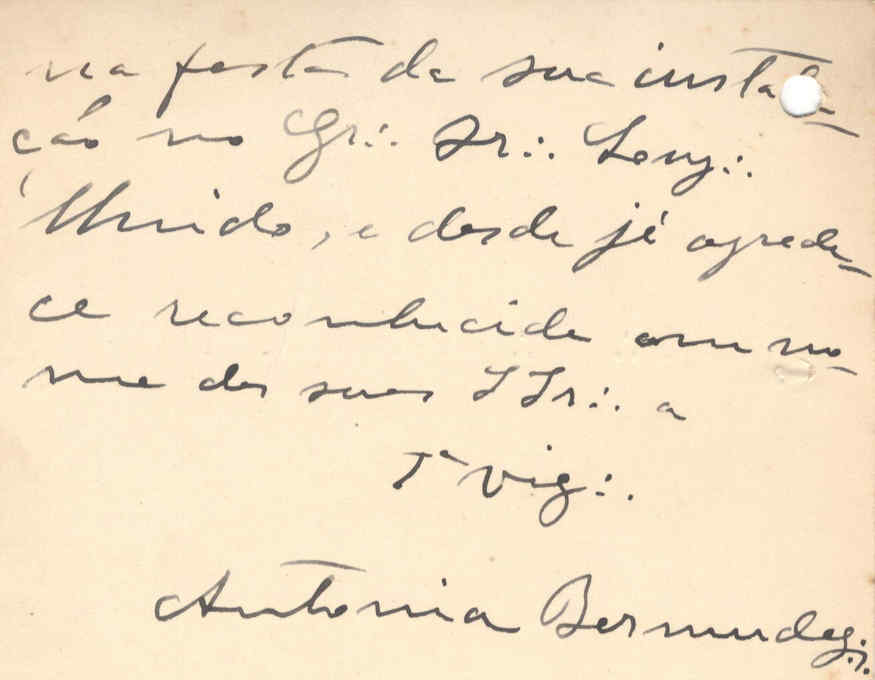 na festa da sua instala-
ção no Gr∴ Or∴ Lus∴
Unido, e desde já agrade-
ce reconhecida em no-
me das suas IIr∴ a
1ª Vig∴
Antonia Bermudes∴